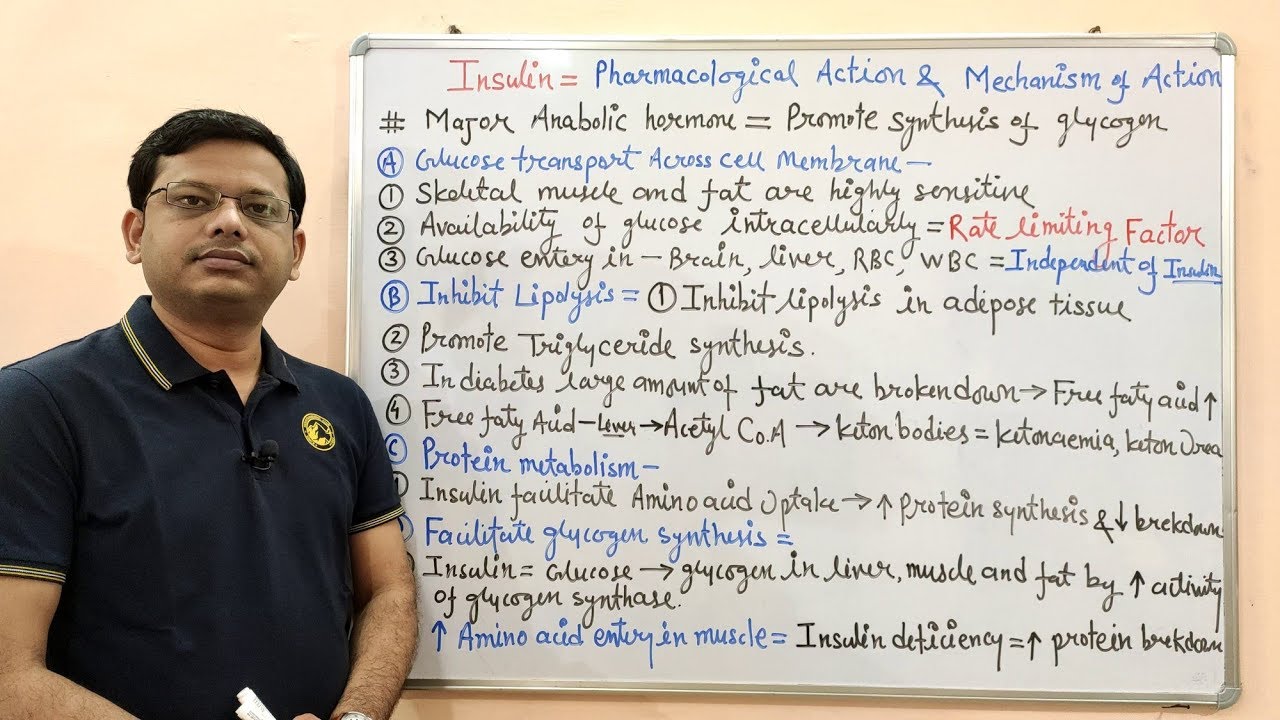 Insulin = Pharmacological Action & Mechanism of Action
# Major Anabolic hormone = Promote synthesis of glycogen
Ⓐ Glucose transport Across cell Membrane –
① Skeletal muscle and fat are highly sensitive
② Availability of glucose intracellularly = Rate limiting Factor
③ Glucose entery in – Brain, liver, RBC, WBC = Independent of Insulin
Ⓑ Inhibit Lipolysis = ① Inhibit lipolysis in adepose tissue
② Promote Triglyceride synthesis.
③ In diabetes large amount of fat are broken down → Free faty acid ↑
④ Free faty Acid – Liver → Acetyl Co.A → keton bodies = ketonaemia, keton Urea
Ⓒ Protein metabolism –
Insulin facilitate Amino acid Uptake → ↑ protein synthesis & ↓ brekdown
Facilitate glycogen synthesis =
Insulin = Glucose → glycogen in liver, muscle and fat by ↑ activity
of glycogen synthase.
↑ Amino acid entery in muscle = Insulin deficiency = ↑ protein brekdown